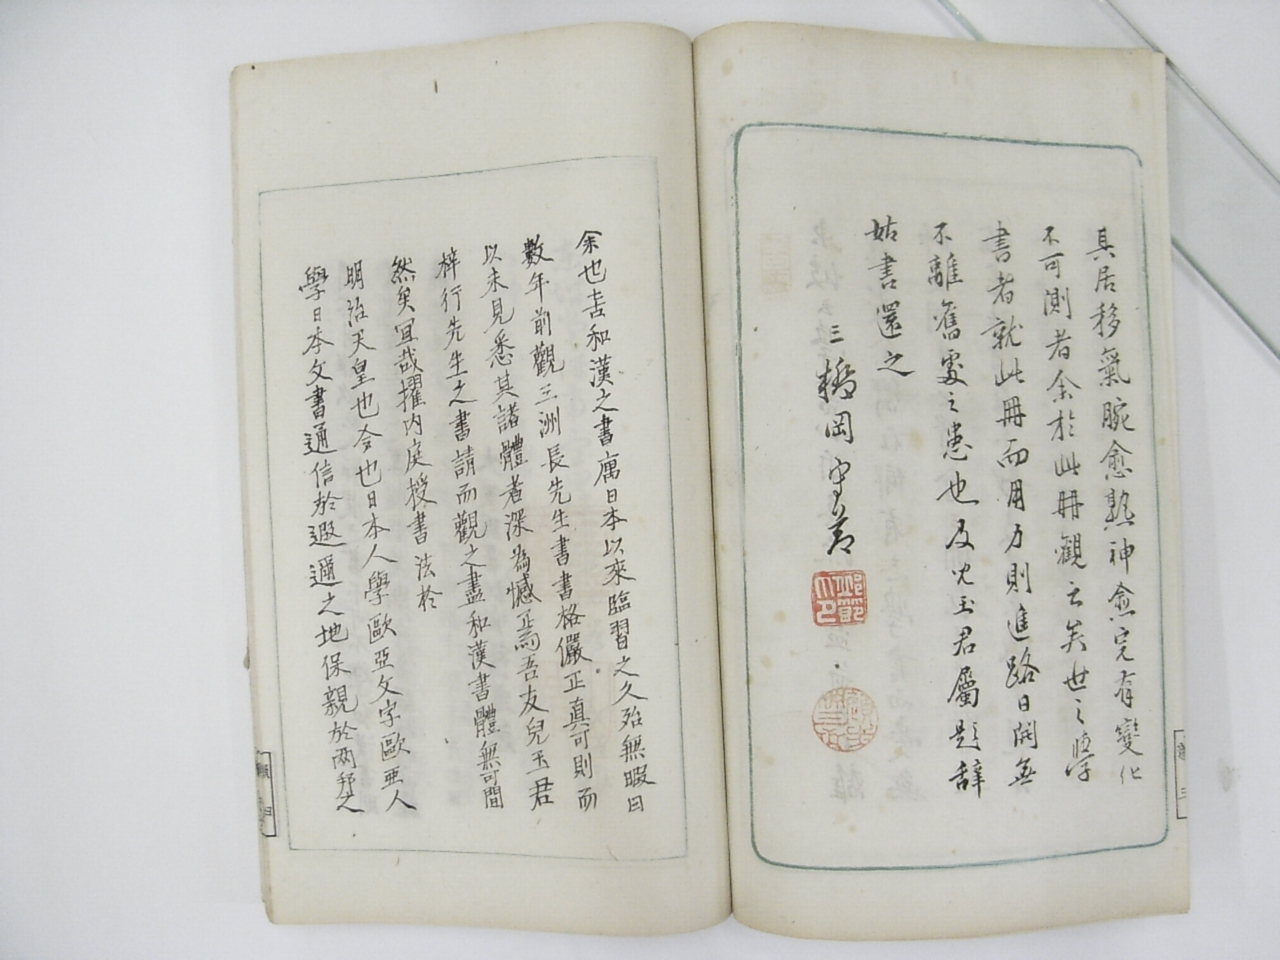 具居移氣腕愈熟神愈完有變化
不可測者余於此冊觀之矣世之修學
書者就此冊而用力則進路日開無
不離舊窠之患也及児玉君屬題辞
姑書還之
三橋岡守節
余也嗜和漢之書寓日本以來臨習之久殆無暇日
數年前觀三洲長先生書書格儼正真可則而
以未見悉其諸體者深為憾正焉吾友兒玉君
梓行先生之書請而觀之盡和漢書體無可間
然矣宜哉擢内庭授書法於
明治天皇也今也日本人學歐亞文字歐亜人
學日本文書通信於遐邇之地保親於两邦之